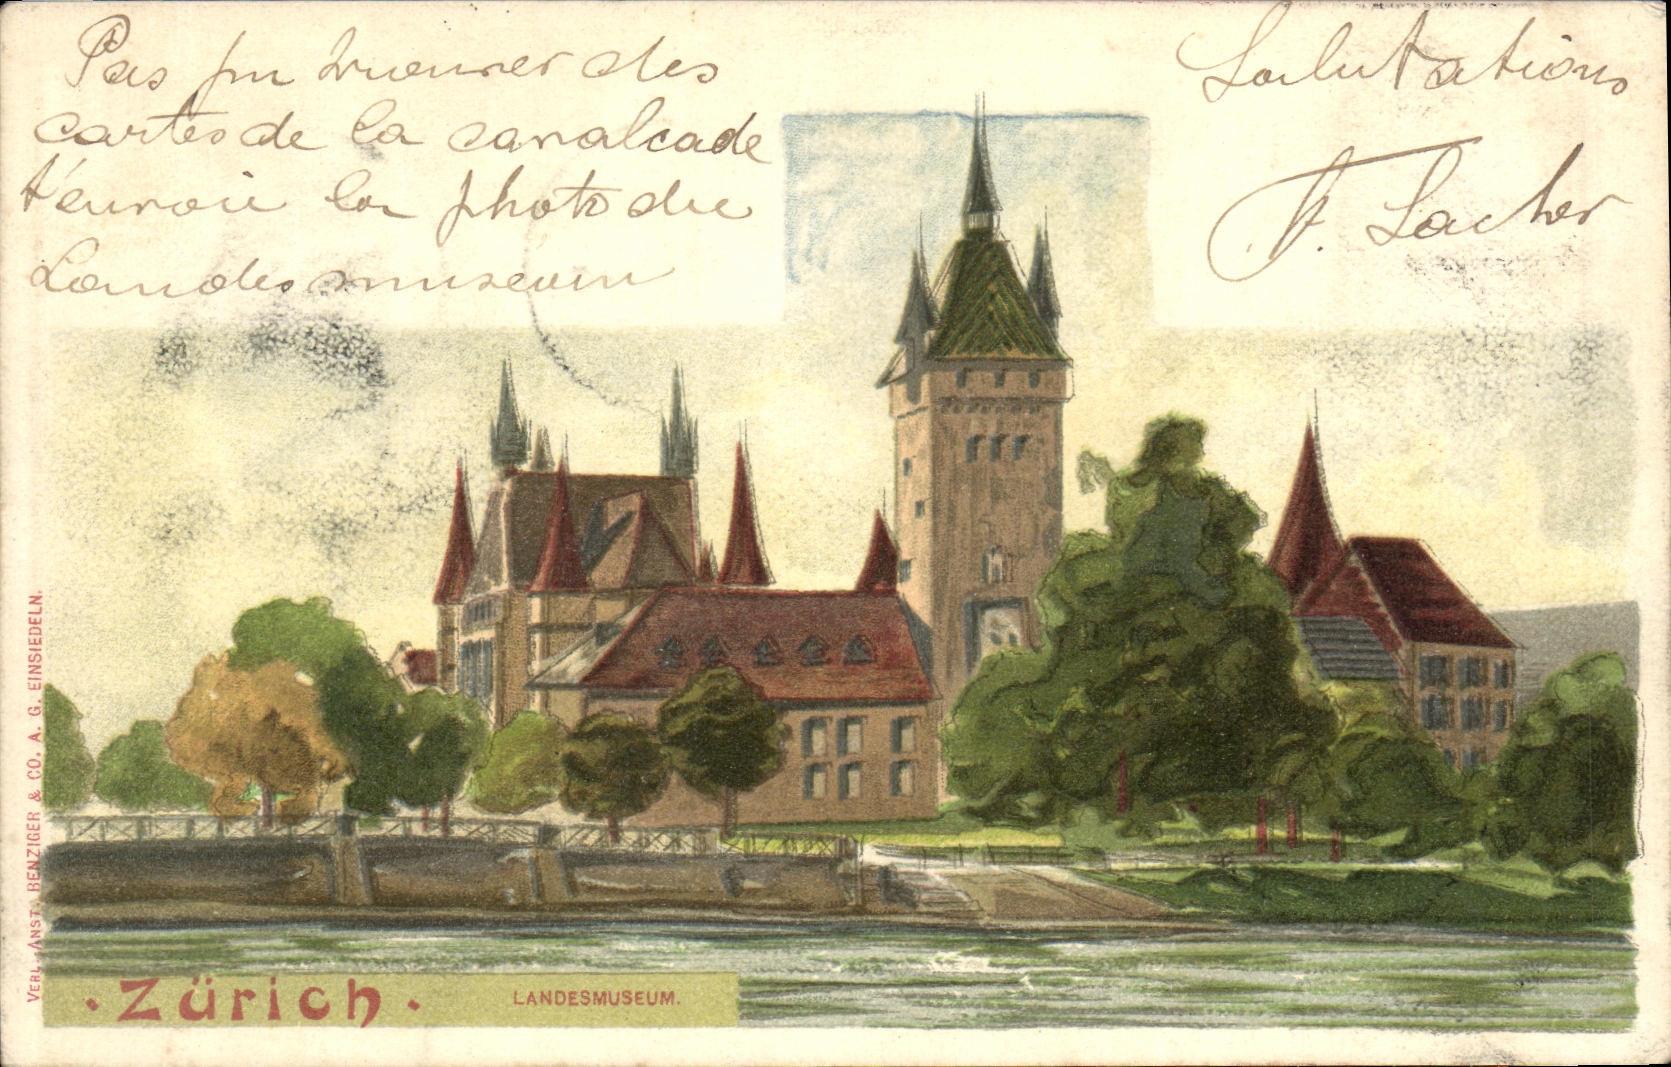 Pas pu trouver des
cartes de la cavalcade
t'envoie la photo du
Landesmuseum
Salutations
F. Lacher
VERL. ANST. BENZIGER & CO. A. G. EINSIEDELN.
· Zürich ·
LANDESMUSEUM.